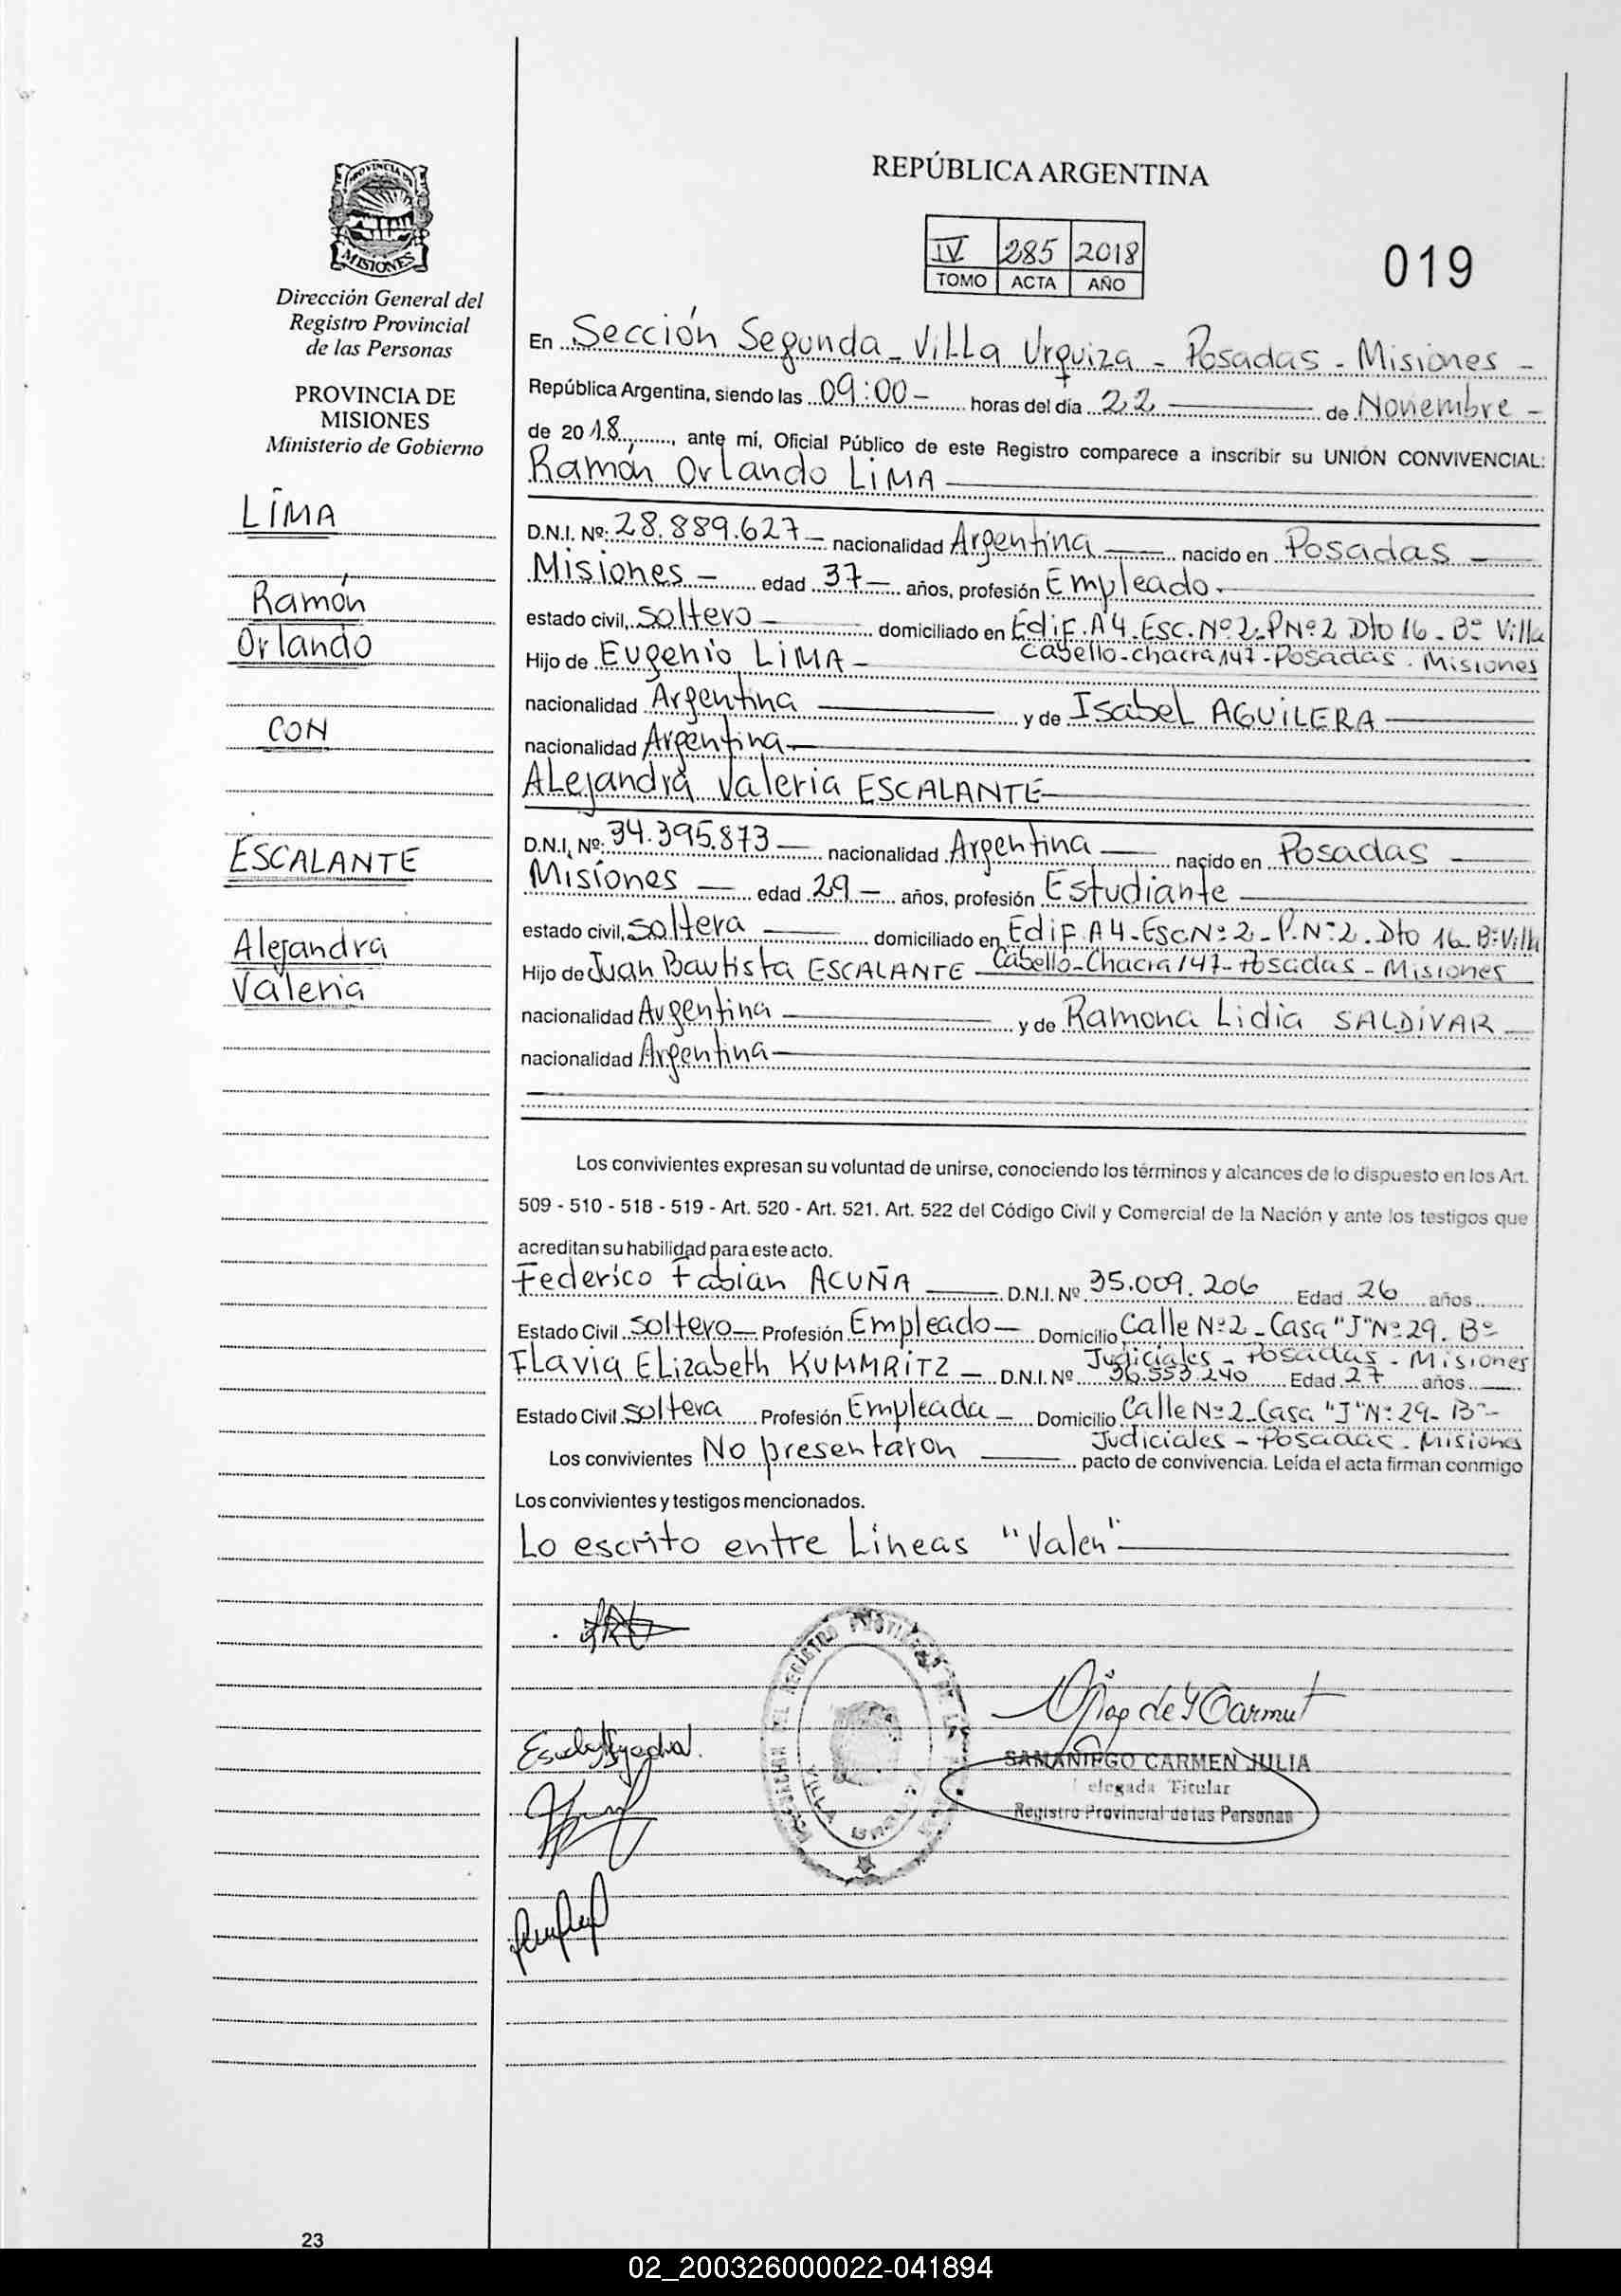 PROVINCIA DE
MISIONES
Dirección General del
Registro Provincial
de las Personas
PROVINCIA DE
MISIONES
Ministerio de Gobierno
LIMA
Ramón
Orlando
CON
ESCALANTE
Alejandra
Valeria
23
REPÚBLICA ARGENTINA
IV 285 2018
TOMO ACTA AÑO
019
En Sección Segunda - Villa Urquiza - Posadas - Misiones -
República Argentina, siendo las 09:00 - horas del día 22 de Noviembre -
de 2018, ante mí, Oficial Público de este Registro comparece a inscribir su UNIÓN CONVIVENCIAL:
Ramón Orlando LIMA
D.N.I. Nº: 28.889.627 - nacionalidad Argentina nacido en Posadas -
Misiones - edad 37 - años, profesión Empleado -
estado civil, soltero - domiciliado en Edif. A4. Esc. Nº 2. P Nº 2 Dto 16 - Bº Villa
Cabello - chacra 147 - Posadas - Misiones
Hijo de Eugenio LIMA -
nacionalidad Argentina y de Isabel AGUILERA
nacionalidad Argentina -
Alejandra Valeria ESCALANTE
D.N.I. Nº: 34.395.873 - nacionalidad Argentina nacido en Posadas
Misiones - edad 29 - años, profesión Estudiante
estado civil, soltera domiciliado en Edif A4 - Esc Nº 2 - P. Nº 2. Dto 16 - Bº Villa
Cabello - Chacra 147 - Posadas - Misiones
Hijo de Juan Bautista ESCALANTE
nacionalidad Argentina y de Ramona Lidia SALDIVAR
nacionalidad Argentina -
Los convivientes expresan su voluntad de unirse, conociendo los términos y alcances de lo dispuesto en los Art.
509 - 510 - 518 - 519 - Art. 520 - Art. 521. Art. 522 del Código Civil y Comercial de la Nación y ante los testigos que
acreditan su habilidad para este acto.
Federico Fabian ACUÑA D.N.I. Nº 35.009.206 Edad 26 años
Estado Civil soltero - Profesión Empleado - Domicilio Calle Nº 2 - Casa "J" Nº 29. Bº
Judiciales - Posadas - Misiones
Flavia Elizabeth KUMMRITZ - D.N.I. Nº 36.553.240 Edad 27 años
Estado Civil soltera Profesión Empleada - Domicilio Calle Nº 2 - Casa "J" Nº 29 - Bº -
Judiciales - Posadas - Misiones
Los convivientes No presentaron pacto de convivencia. Leída el acta firman conmigo
Los convivientes y testigos mencionados.
Lo escrito entre Lineas "Valen"
SAMANIEGO CARMEN JULIA
elegada Titular
Registro Provincial de las Personas
02_200326000022-041894